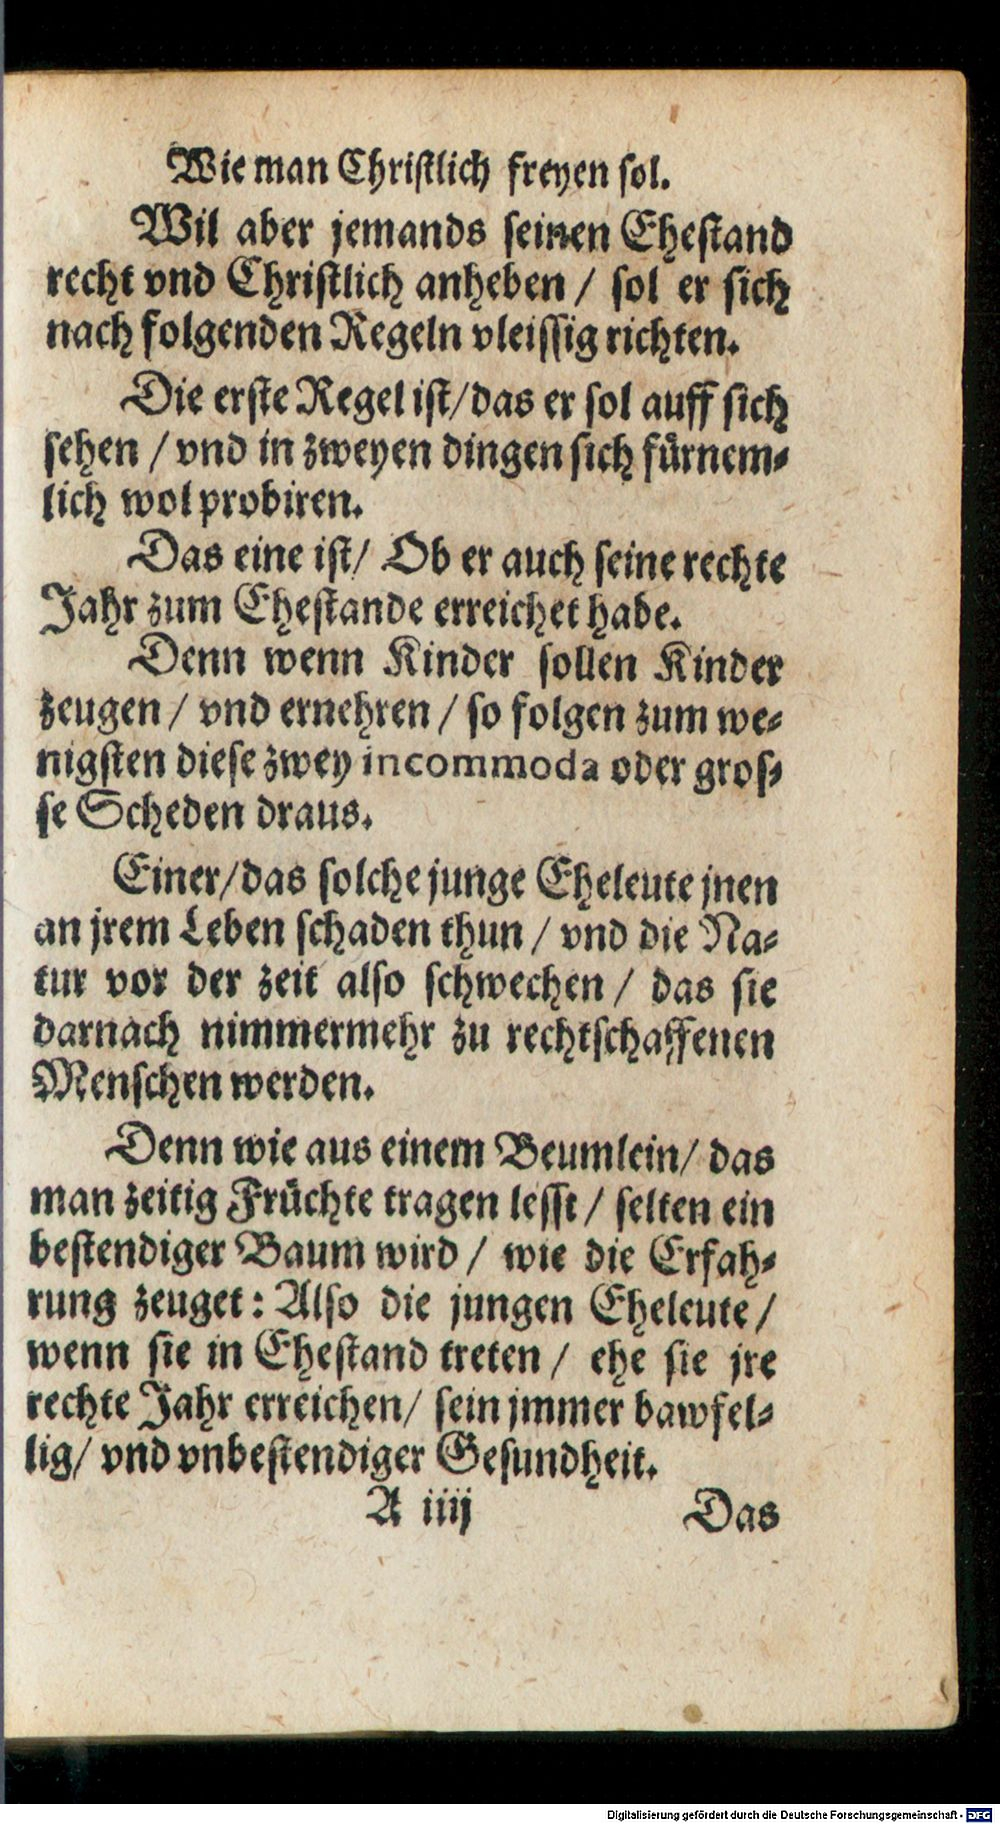 Wie man Christlich freyen sol.
Wil aber jemands seinen Ehestand
recht vnd Christlich anheben / sol er sich
nach folgenden Regeln vleissig richten.
Die erste Regel ist / das er sol auff sich
sehen / vnd in zweyen dingen sich fürnem-
lich wol probiren.
Das eine ist / Ob er auch seine rechte
Jahr zum Ehestande erreichet habe.
Denn wenn Kinder sollen Kinder
zeugen / vnd ernehren / so folgen zum we-
nigsten diese zwey incommoda oder gros-
se Scheden draus.
Einer / das solche junge Eheleute jnen
an jrem Leben schaden thun / vnd die Na-
tur vor der zeit also schwechen / das sie
darnach nimmermehr zu rechtschaffenen
Menschen werden.
Denn wie aus einem Beumlein / das
man zeitig Früchte tragen lesst / selten ein
bestendiger Baum wird / wie die Erfah-
rung zeuget : Also die jungen Eheleute /
wenn sie in Ehestand treten / ehe sie jre
rechte Jahr erreichen / sein jmmer bawfel-
lig / vnd vnbestendiger Gesundheit.
A iiij Das
Digitalisierung gefördert durch die Deutsche Forschungsgemeinschaft - DFG